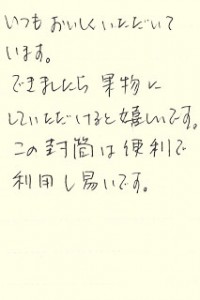 いつもおいしくいただいて
います。
できましたら果物に
していただけると嬉しいです。
この封筒は便利で
利用し易いです。